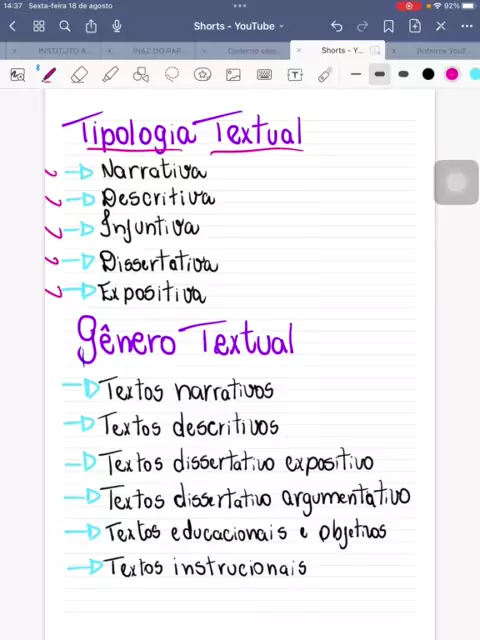 14:37 Sexta-feira 18 de agosto
92%
Shorts - YouTube
INSTITUTO A
INAZ DO PAR
Caderno sem
Shorts - YouTube
Tipologia Textual
Narrativa
Descritiva
Injuntiva
Dissertativa
Expositiva
Gênero Textual
Textos narrativos
Textos descritivos
Textos dissertativo expositivo
Textos dissertativo argumentativo
Textos educacionais e objetivos
Textos instrucionais